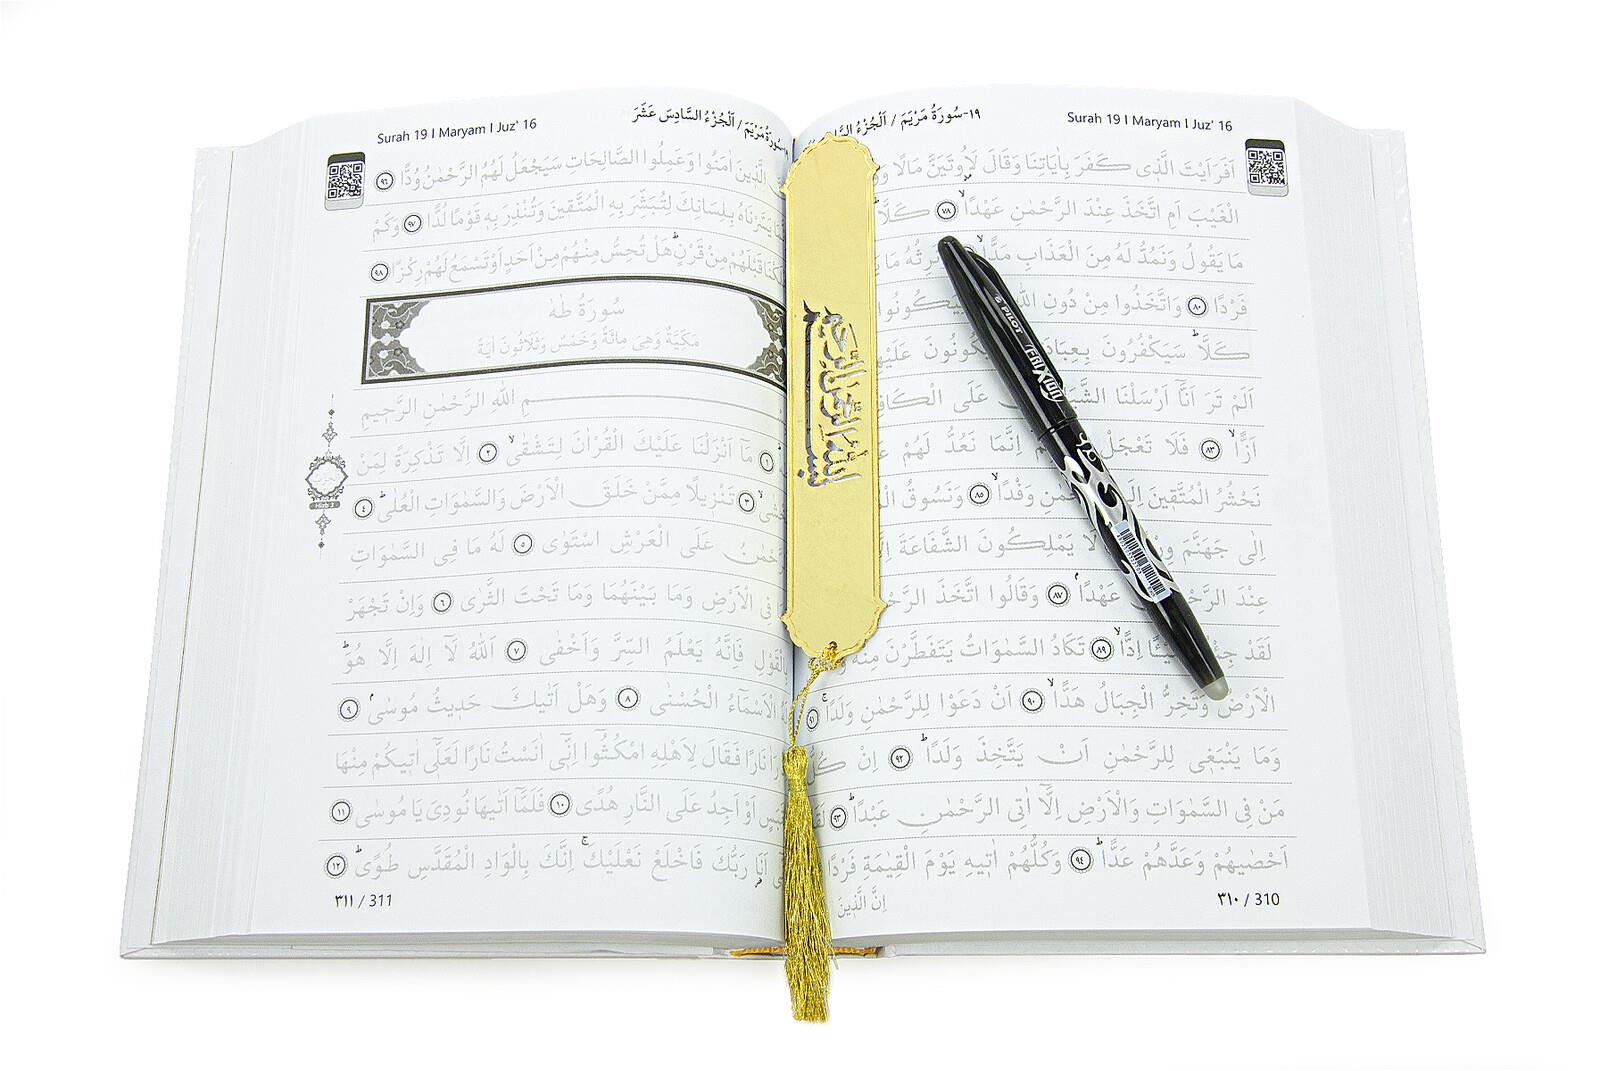 Surah 19 I Maryam I Juz' 16
١٩-سُورَةُ مَرْيَمَ / اَلْجُزْءُ
اَفَرَاَيْتَ الَّذٖى كَفَرَ بِاٰيَاتِنَا وَقَالَ لَاُوتَيَنَّ مَالًا
الْغَيْبَ اَمِ اتَّخَذَ عِنْدَ الرَّحْمٰنِ عَهْدًاۙ ٧٨ كَلَّاۜ
مَا يَقُولُ وَنَمُدُّ لَهُ مِنَ الْعَذَابِ مَدًّاۙ نَرِثُهُ مَا
فَرْدًا ٨٠ وَاتَّخَذُوا مِنْ دُونِ اللّٰهِ لِيَكُونُوا
كَلَّاۜ سَيَكْفُرُونَ بِعِبَادَ يَكُونُونَ عَلَيْهِ
اَلَمْ تَرَ اَنَّا اَرْسَلْنَا الشَّيَا عَلَى الْكَافِ
اَزًّاۙ ٨٣ فَلَا تَعْجَلْ اِنَّمَا نَعُدُّ لَهُمْ
نَحْشُرُ الْمُتَّقٖينَ اِلَى الرَّحْمٰنِ وَفْدًاۙ ٨٥ وَنَسُوقُ
اِلٰى جَهَنَّمَ لَا يَمْلِكُونَ الشَّفَاعَةَ
عِنْدَ الرَّحْمٰنِ عَهْدًاۢ ٨٧ وَقَالُوا اتَّخَذَ
لَقَدْ جِئْتُمْ شَيْئًا اِدًّاۙ ٨٩ تَكَادُ السَّمٰوَاتُ يَتَفَطَّرْنَ مِنْهُ
الْاَرْضُ وَتَخِرُّ الْجِبَالُ هَدًّاۙ ٩٠ اَنْ دَعَوْا لِلرَّحْمٰنِ وَلَدًاۚ ٩١
وَمَا يَنْبَغٖى لِلرَّحْمٰنِ اَنْ يَتَّخِذَ وَلَدًاۜ ٩٢ اِنْ كُلُّ
مَنْ فِى السَّمٰوَاتِ وَالْاَرْضِ اِلَّٓا اٰتِى الرَّحْمٰنِ عَبْدًاۜ ٩٣ لَقَدْ
اَحْصٰيهُمْ وَعَدَّهُمْ عَدًّاۜ ٩٤ وَكُلُّهُمْ اٰتٖيهِ يَوْمَ الْقِيٰمَةِ فَرْدًا
اِنَّ الَّذٖينَ
٣١٠ / 310
PILOT
FRIXION
بسم الله الرحمن الرحيم
Surah 19 I Maryam I Juz' 16
سُورَةُ مَرْيَمَ / اَلْجُزْءُ السَّادِسَ عَشَرَ
الَّذٖينَ اٰمَنُوا وَعَمِلُوا الصَّالِحَاتِ سَيَجْعَلُ لَهُمُ الرَّحْمٰنُ وُدًّا ٩٦
يَسَّرْنَاهُ بِلِسَانِكَ لِتُبَشِّرَ بِهِ الْمُتَّقٖينَ وَتُنْذِرَ بِهٖ قَوْمًا لُدًّا ٩٧ وَكَمْ
اَهْلَكْنَا قَبْلَهُمْ مِنْ قَرْنٍۜ هَلْ تُحِسُّ مِنْهُمْ مِنْ اَحَدٍ اَوْ تَسْمَعُ لَهُمْ رِكْزًا ٩٨
سُورَةُ طٰهٰ
مَكِّيَّةٌ وَهِىَ مِائَةٌ وَخَمْسٌ وَثَلَاثُونَ اٰيَةً
اللّٰهِ الرَّحْمٰنِ الرَّحٖيمِ
١ مَٓا اَنْزَلْنَا عَلَيْكَ الْقُرْاٰنَ لِتَشْقٰىۙ ٢ اِلَّا تَذْكِرَةً لِمَنْ
يَخْشٰىۙ ٣ تَنْزٖيلًا مِمَّنْ خَلَقَ الْاَرْضَ وَالسَّمٰوَاتِ الْعُلٰىۜ ٤
اَلرَّحْمٰنُ عَلَى الْعَرْشِ اسْتَوٰى ٥ لَهُ مَا فِى السَّمٰوَاتِ
فِى الْاَرْضِ وَمَا بَيْنَهُمَا وَمَا تَحْتَ الثَّرٰى ٦ وَاِنْ تَجْهَرْ
بِالْقَوْلِ فَاِنَّهُ يَعْلَمُ السِّرَّ وَاَخْفٰى ٧ اَللّٰهُ لَٓا اِلٰهَ اِلَّا هُوَۜ
الْاَسْمَٓاءُ الْحُسْنٰى ٨ وَهَلْ اَتٰيكَ حَدٖيثُ مُوسٰىۢ ٩
نَارًا فَقَالَ لِاَهْلِهِ امْكُثُٓوا اِنّٖٓى اٰنَسْتُ نَارًا لَعَلّٖٓى اٰتٖيكُمْ مِنْهَا
بِقَبَسٍ اَوْ اَجِدُ عَلَى النَّارِ هُدًى ١٠ فَلَمَّٓا اَتٰيهَا نُودِىَ يَا مُوسٰى ١١
اَنَا رَبُّكَ فَاخْلَعْ نَعْلَيْكَۚ اِنَّكَ بِالْوَادِ الْمُقَدَّسِ طُوًىۜ ١٢
٣١١ / 311